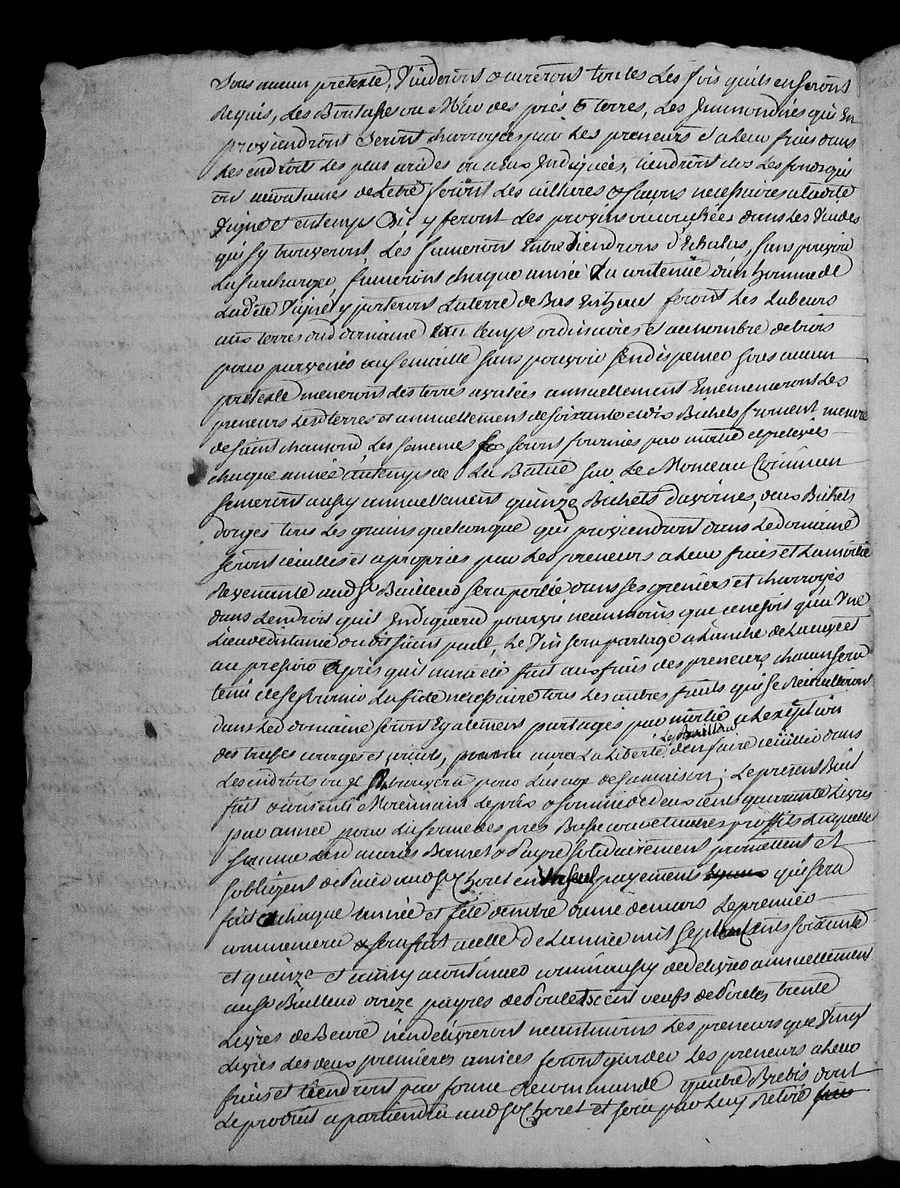 sous aucun pretexte, Vuideront & cureront toutes Les fois quils en seront
Requis, Les Boutasses ou des prés & terres, Les Immondices qui En
proviendront seront charroyées par Les preneurs a Leur frais dans
Les endroits Les plus arides ou a eux Indiquées, tiendront clos Les fonds qui
ont accoutumés de Letre feront Les cultures & façons necessaires a ladite
Vigne & en temps Dû y feront des provins ou couchées dans Les Vuides
qui sy trouveront Les fumeront Entretiendront d'Echalas, sans pouvoir
La surcharger, fumeront chaque année La contenüe d'un homme de
Ladite Vigne y porteront La terre de Bas En haut feront Les Labeurs
aux terres dud domaine aux temps ordinaires et au nombre de trois
pour parvenir au semaille sans pouvoir sen dispenser sous aucun
pretexte meneront Les terres a annuellement Ensemenceront Les
preneurs Lesd terres et annuellement de soixante et dix Bichets froment mesure
de saint chamond, Les semences seront fournies par moitié et prelevés
chaque année au temps de La Battue sur Le Monceau Commun
semeront aussy annuellement quinze Bichets d'avoines, deux Bichets
d'orges tous Les grains quelconque qui proviendront dans Le domaine
seront ceuillis et apropriés par Les preneurs a Leur frais et La moitié
Revenante aud Sr Bailleur sera portée dans ses greniers et charroyés
dans Lendroit quil Indiquera pourvu neanmoins que ce ne soit qu'a Une
Lieue de distance dudit saint paul, Le Vin sera partagé a Lanche de La cuve et
au pressoir après qu'il aura eté fait aux frais des preneurs chacun sera
tenu de se fournir La futte necessaire tous Les autres fruits qui se Recuilliront
dans Led domaine seront Egalement partagés par moitié a Lexception
des trufes courges et , Le Bailleur aura La Liberté d'en faire ceuillir dans
Les endroits ou Il sen trouvera pour Lusage de sa maison; Le present Bail
fait & consenti Moiennant Le prix & somme de deux cens quarante Livres
par année pour La ferme des prés Basse cour et autres profits Laquelle
somme Lesd mariés Bonnet & payre solidairement promettent et
sobligent de payer aud Sr Choret en Un seul payement qui sera
fait Chaque année et fête de notre dame de mars Le premier
commencera & sera fait a celle de Lannée mil sept cens soixante
et quinze et ainsy a continuer comm'aussy de delivrer annuellement
aud Sr Bailleur onze payres de Poulets cent oeufs de Poules, trente
Livres de Beure n'en delivreront neanmoins Les preneurs que Vingt
Livres Les deux premières années feront garder Les preneurs a Leur
frais et tiendront par forme de commande quatre Brebis dont
Le produit apartiendra aud Sr Choret et sera par Luy Retiré